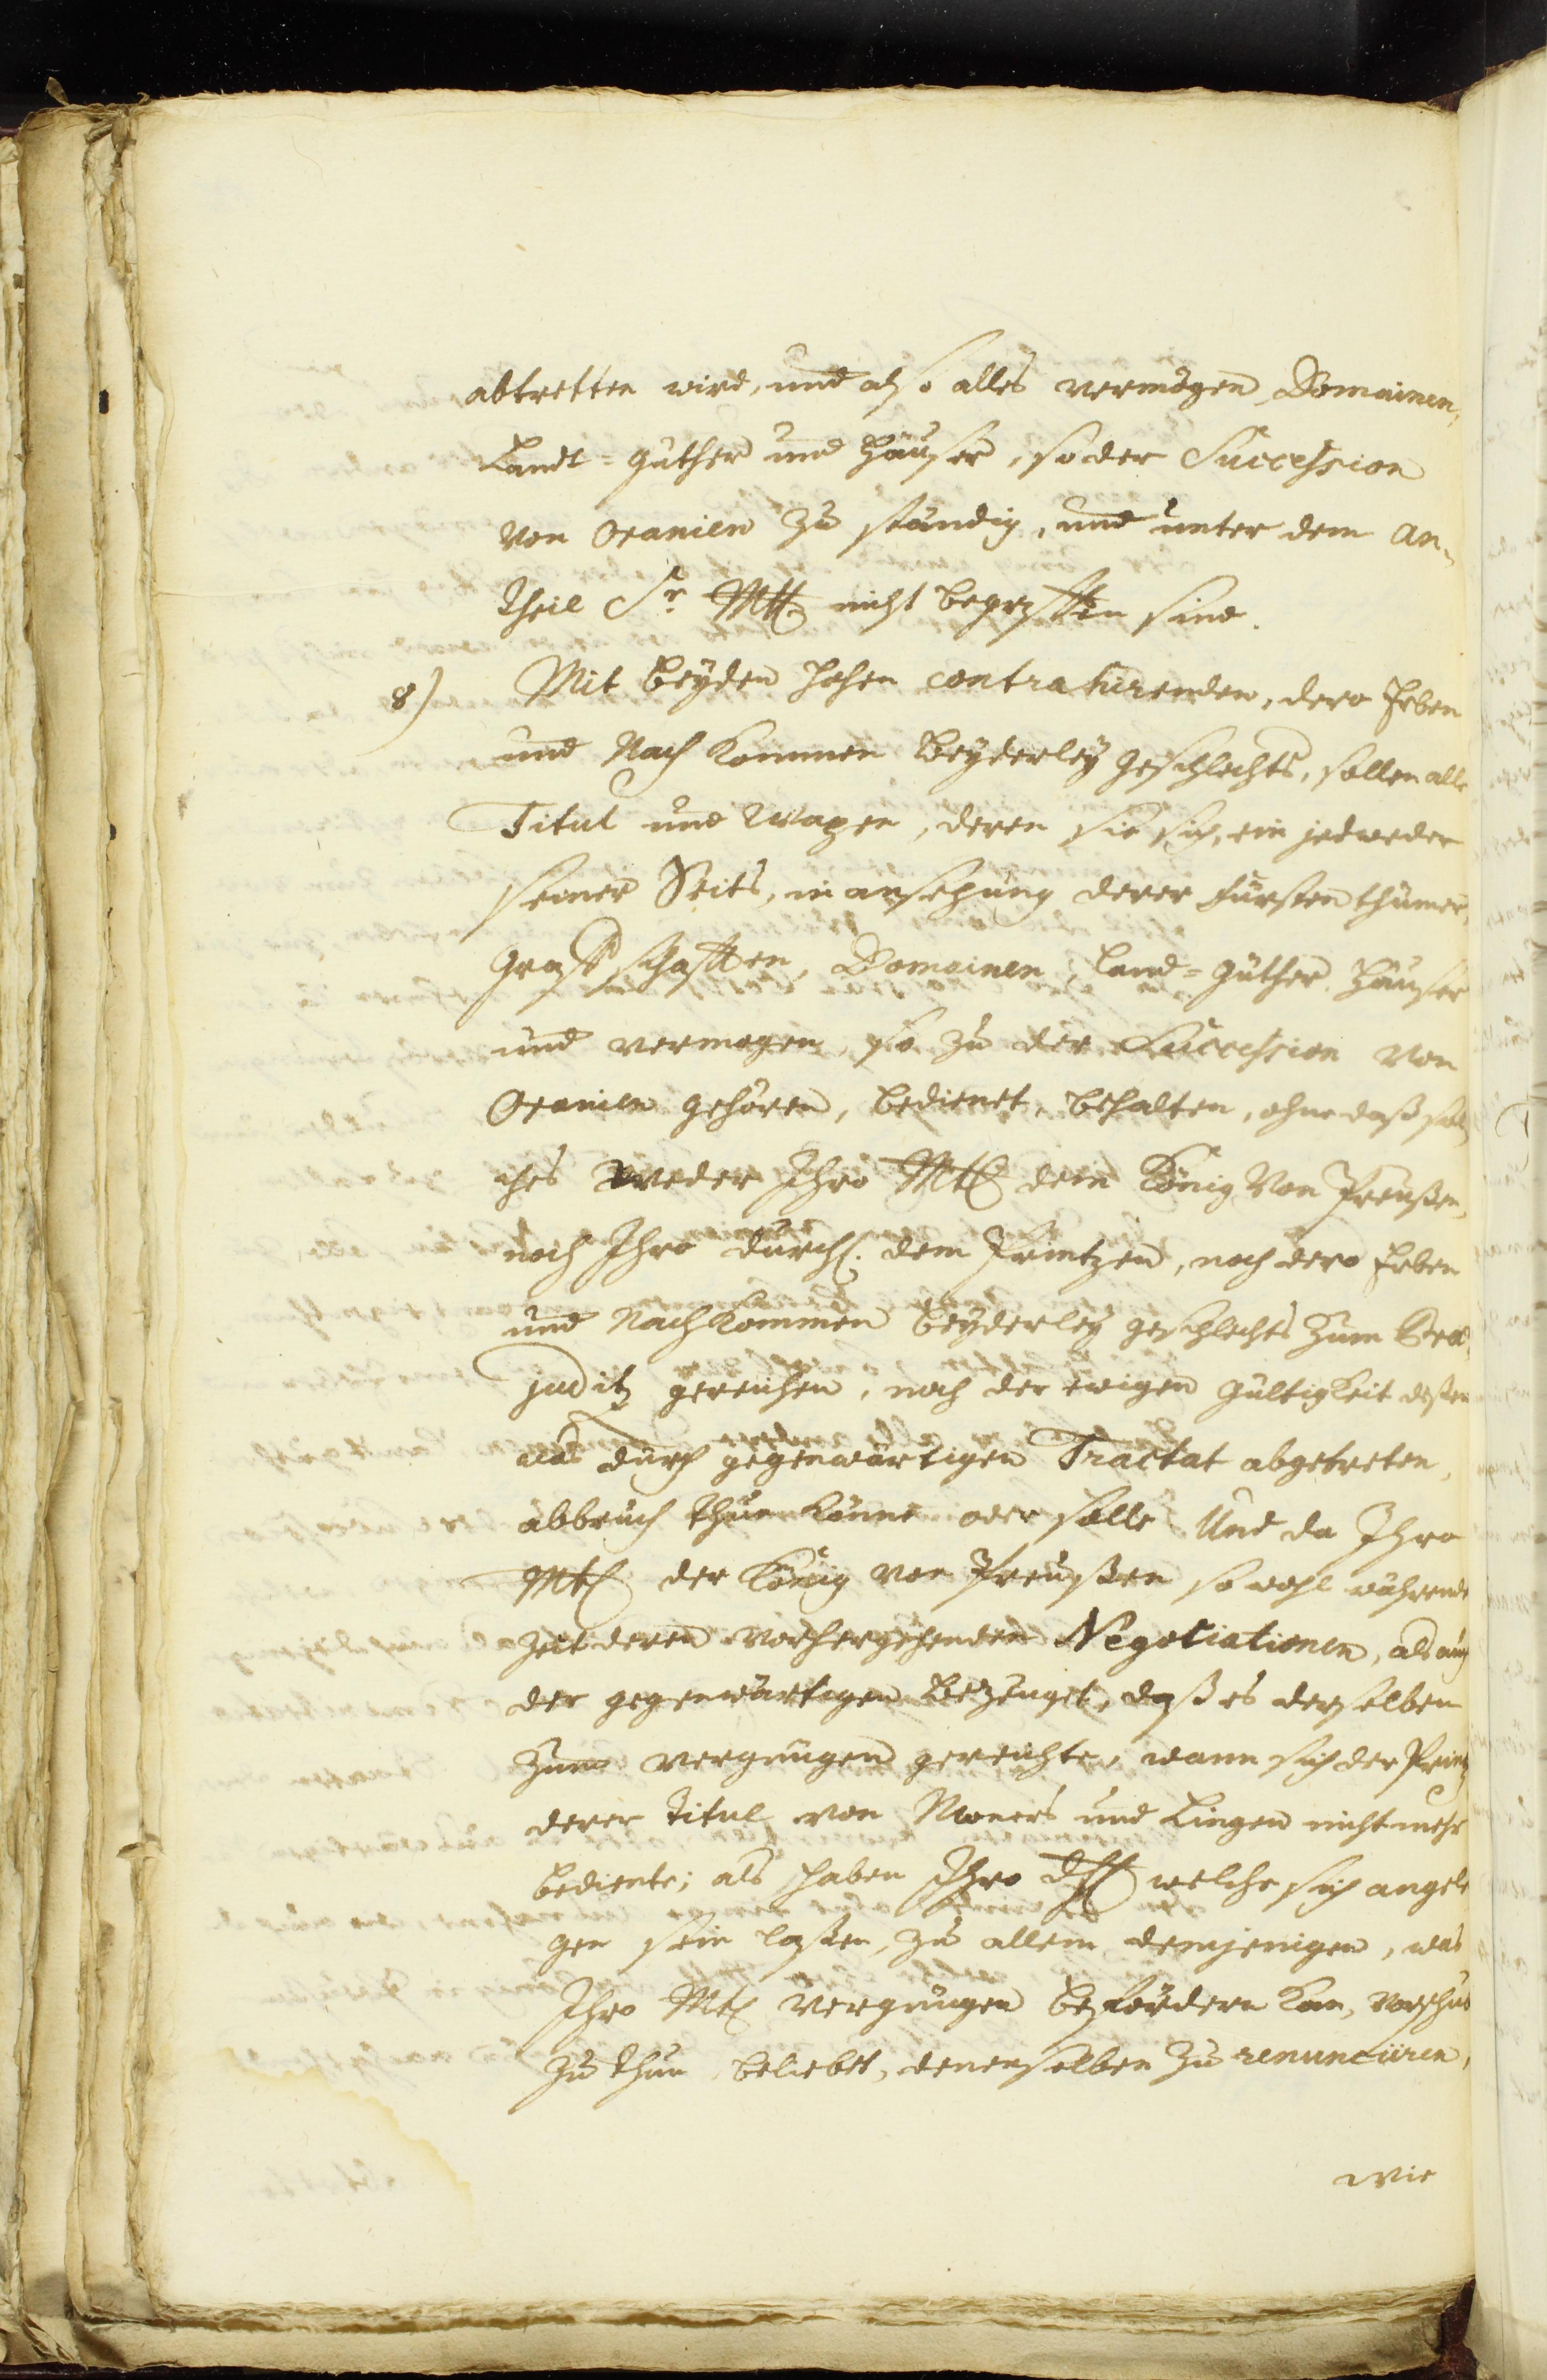 abtretten wird, und also alles vermögen, Domainen,
Landt=güther und Häußer, so der Succession
von Oranien zu ständig, und unter dem An-
theil Sr. Mtt. nicht begriffen sind.
8) Mit beyden hohen contrahirenden, dero Erben
und Nach kommen beyderley geschlechts, sollen alle
Titul und Wapen, deren sie sich, ein jedweder
seiner Seits, in ansehung derer fürstenthümer,
Graffschafften, Domainen, land=güther, Häußer
und vermogen, so zu der Succession von
Oranien gehören, bedienet, behalten, ohne daß sol
ches weder Ihro Mtt. dem König von Preußen,
noch Ihro Durchl. dem Printzen, noch dero Erben
und Nachkommen beyderley geschlechts zum Præ
juditz gereichen, noch der ewigen gültigkeit deßen
was durch gegenwärtigen Tractat abgetreten,
abbruch thun könne oder solle. Und da Ihro
Mtt. der König von Preußen so wohl während
zeit deren vorhergehenden Negotiationen, als auch
der gegenwärtigen bezeuget, daß es derselben
zum vergnügen gereichte, wann sich der Printz
derer Titul von Moeurs und Lingen nicht mehr
bediente; als haben Ihro Dhl. welche sich angele
gen sein laßen, zu allem demjenigen, was
Ihro Mtt. vergnügen befördern kan, vorschub
zu thun, beliebet, denenselben zu renunciiren,
wie